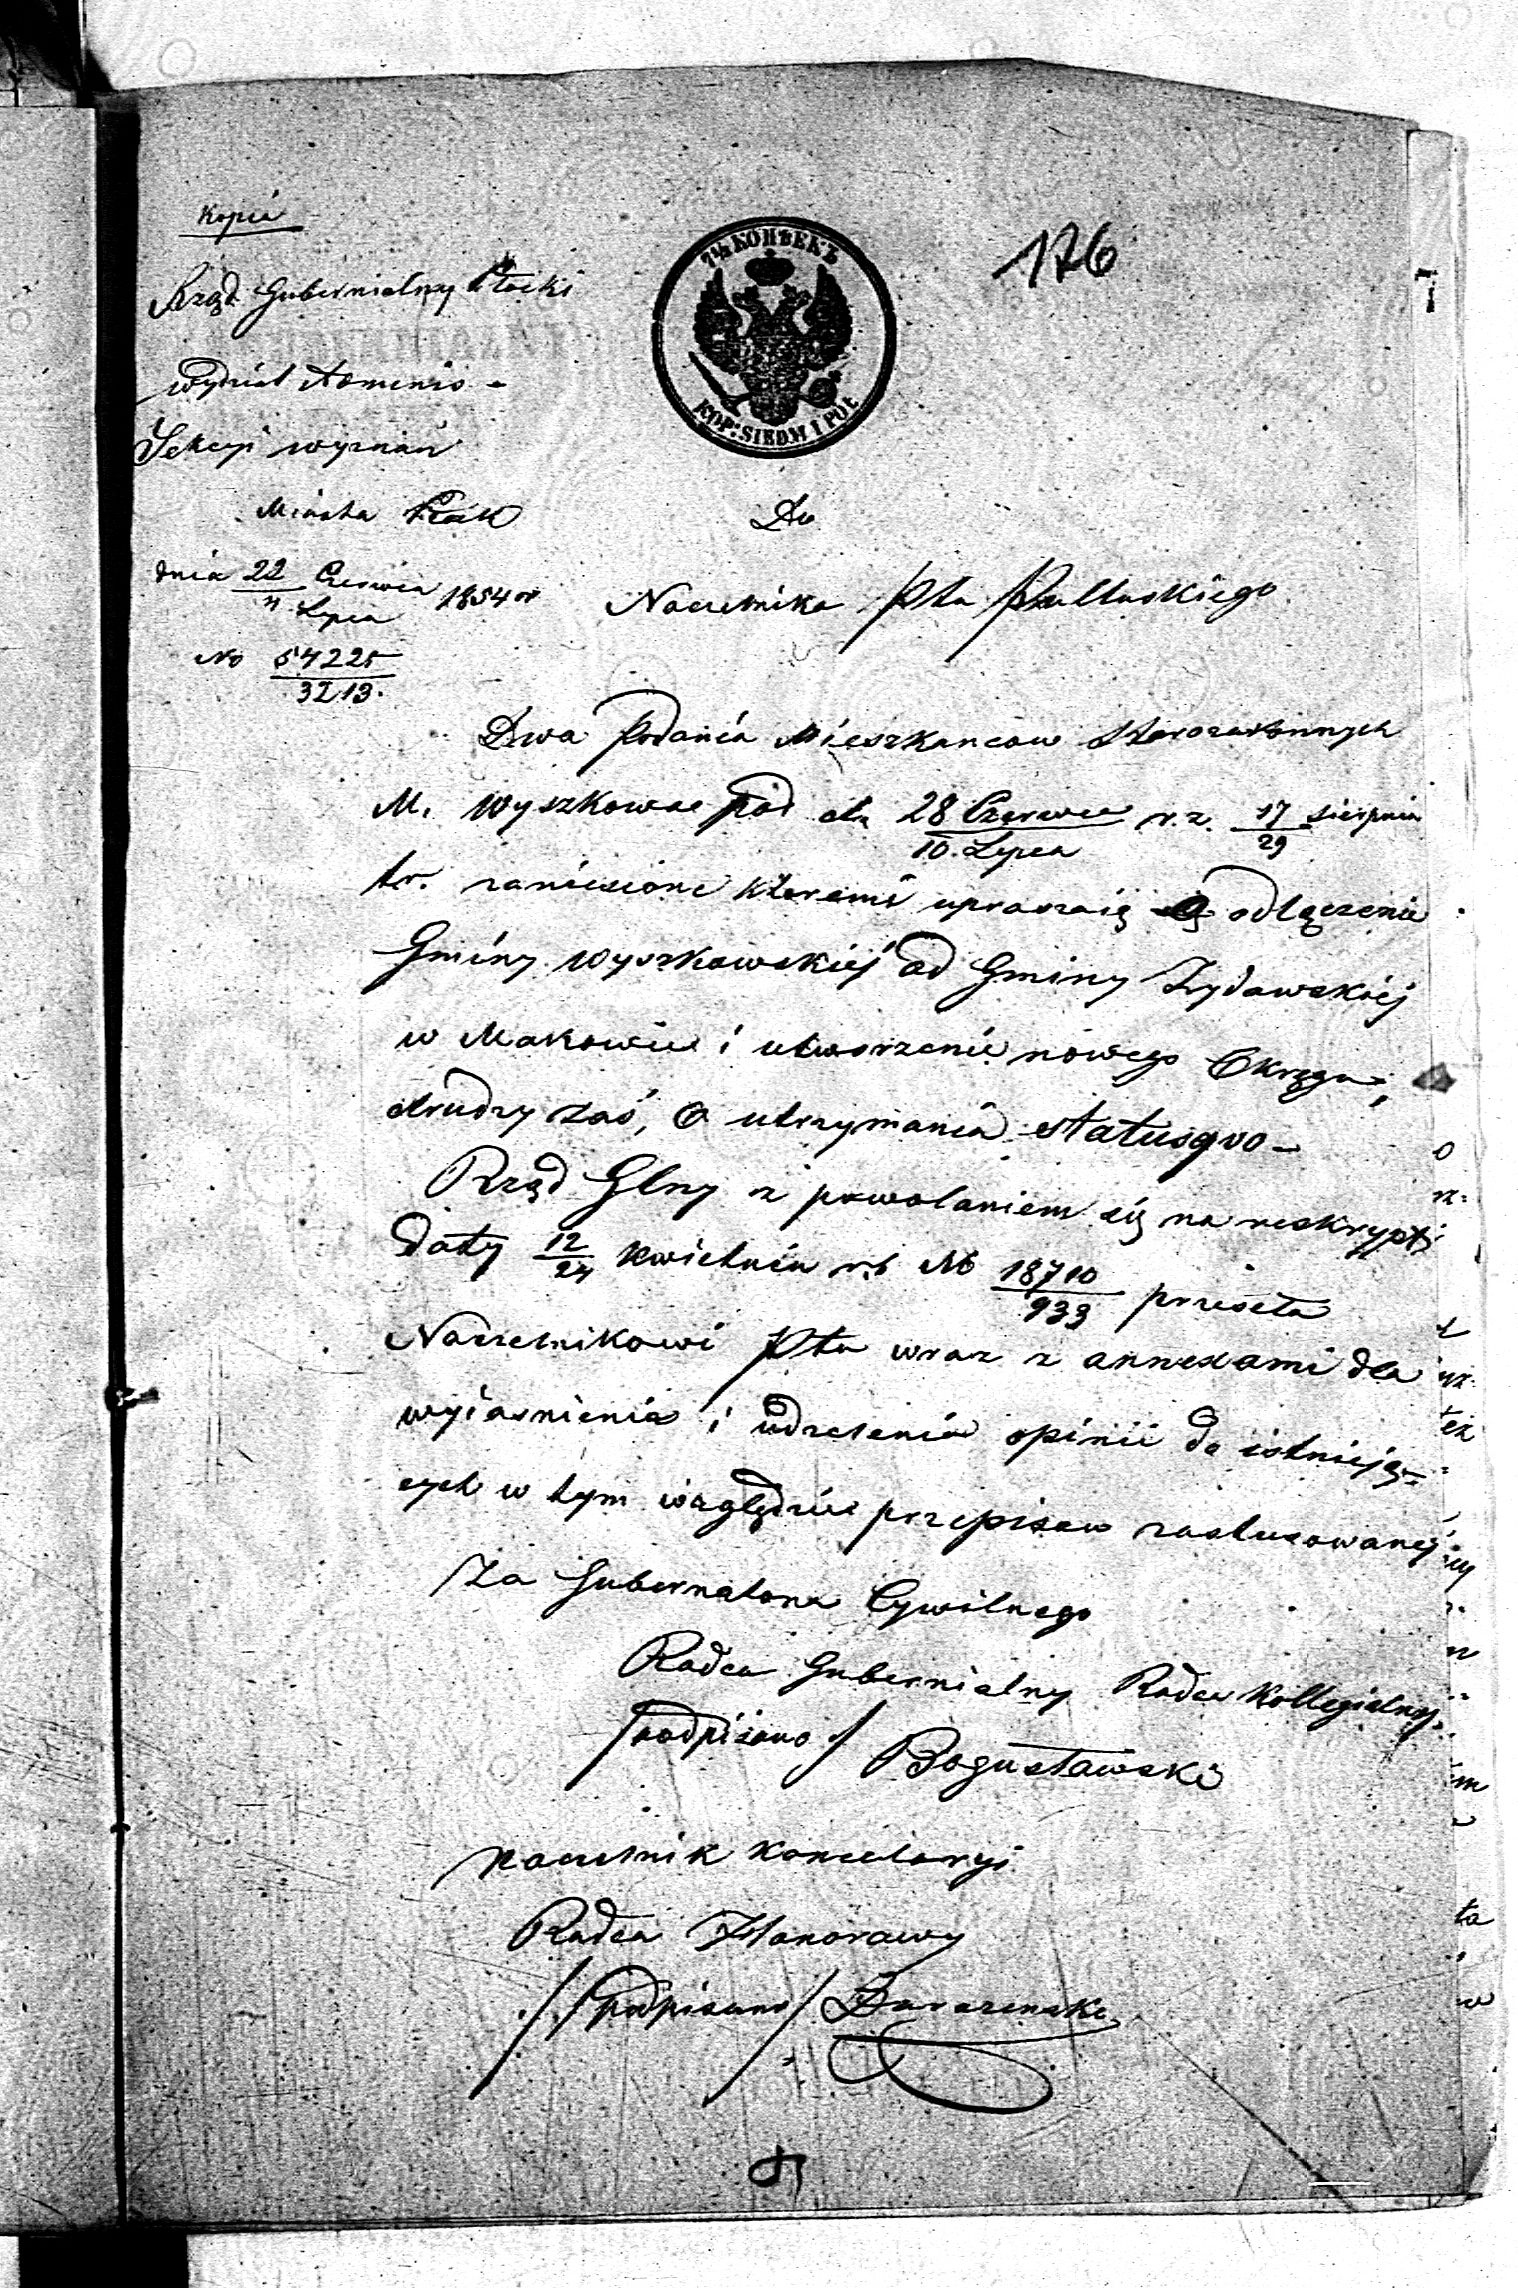 Kopia
176
7½ КОПѢЕКЪ
KOP: SIEDM I PÓŁ
Rząd Gubernialny Płocki
Wydział Adminis-
Sekcyi wyznań
Miasta Płock
dnia 22 Czerwca 1854 r
4 Lipca
No 54225
3213.
Do
Naczelnika Ptu Pułtuskiego
Dwa Podania Mieszkancow Starozakonnych
M. Wyszkowa pod 28 Czerwca r.z. 17 Sierpnia
10. Lipca 29
t.r. zaniesione któremi upraszaią o odłączenie
Gminy Wyszkowskiéj od Gminy Żydowskiéj
w Makowie i utworzenie nowego Okręgu,
drudzy zaś, o utrzymania statusquo-
Rząd Glny z powołaniem się na reskrypt
daty 12 Kwietnia r.b No 18710 przeseła
24 933
Naczelnikowi Ptu wraz z annexami dla
wyiaśnienia i udzielenia opinii do istnieją-
cych w tym względzie przepisow zastosowanej
Za Gubernatora Cywilnego
Radca Gubernialny Radca Kollegialny
/podpisano/ Bogusławski
Naczelnik Kancelaryi
Radca Honorowy
/podpisano/